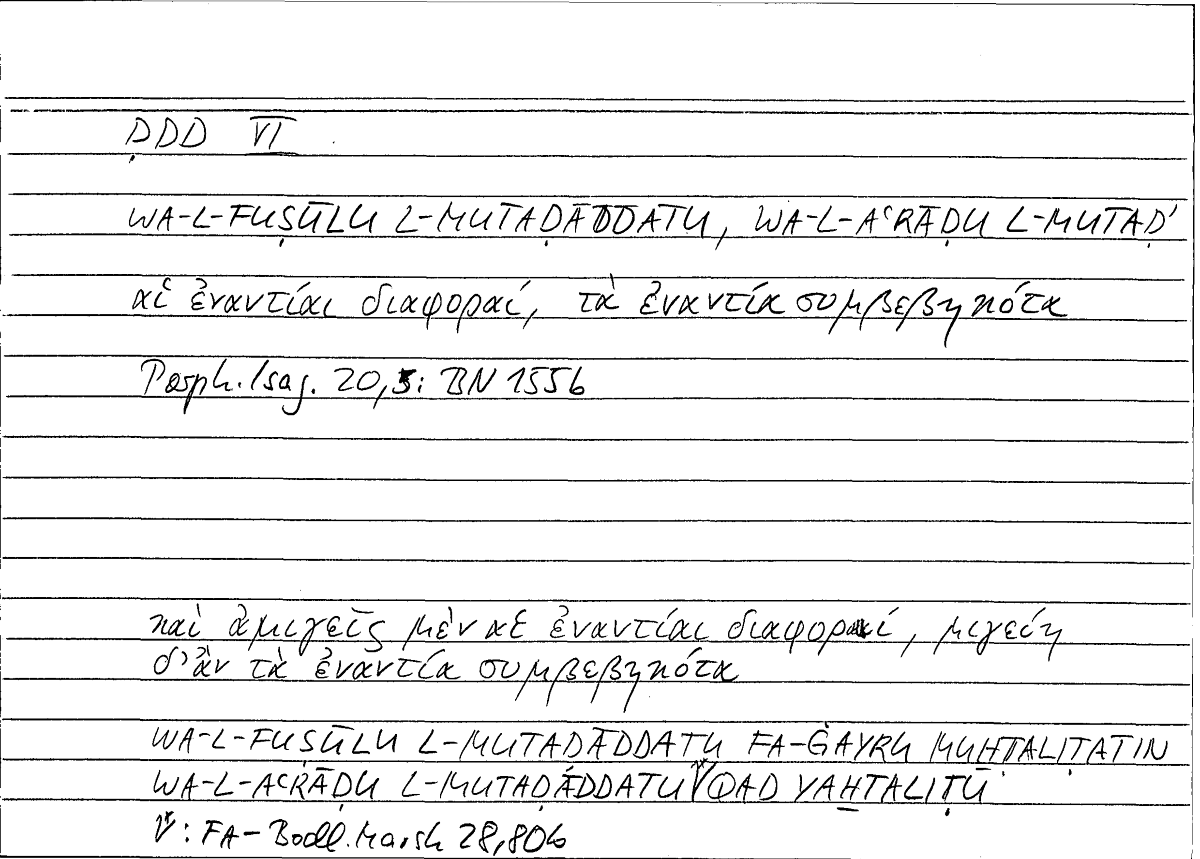 ḌDD VI
WA-L-FUṢŪLU L-MUTAḌĀDDATU, WA-L-AʿRĀḌU L-MUTAḌ'
αἱ ἐναντίαι διαφοραί, τὰ ἐναντία συμβεβηκότα
Porph. Isag. 20,5: BN 155b
καὶ ἀμιγεῖς μὲν αἱ ἐναντίαι διαφοραί, μιγείη
δ' ἂν τὰ ἐναντία συμβεβηκότα
WA-L-FUṢŪLU L-MUTAḌĀDDATU FA-ĠAYRU MUḪTALIṬATIN
WA-L-AʿRĀḌU L-MUTAḌĀDDATU ʳ* QAD YAḪTALIṬŪ
ʳ*: FA- Bodl. Marsh 28,80b